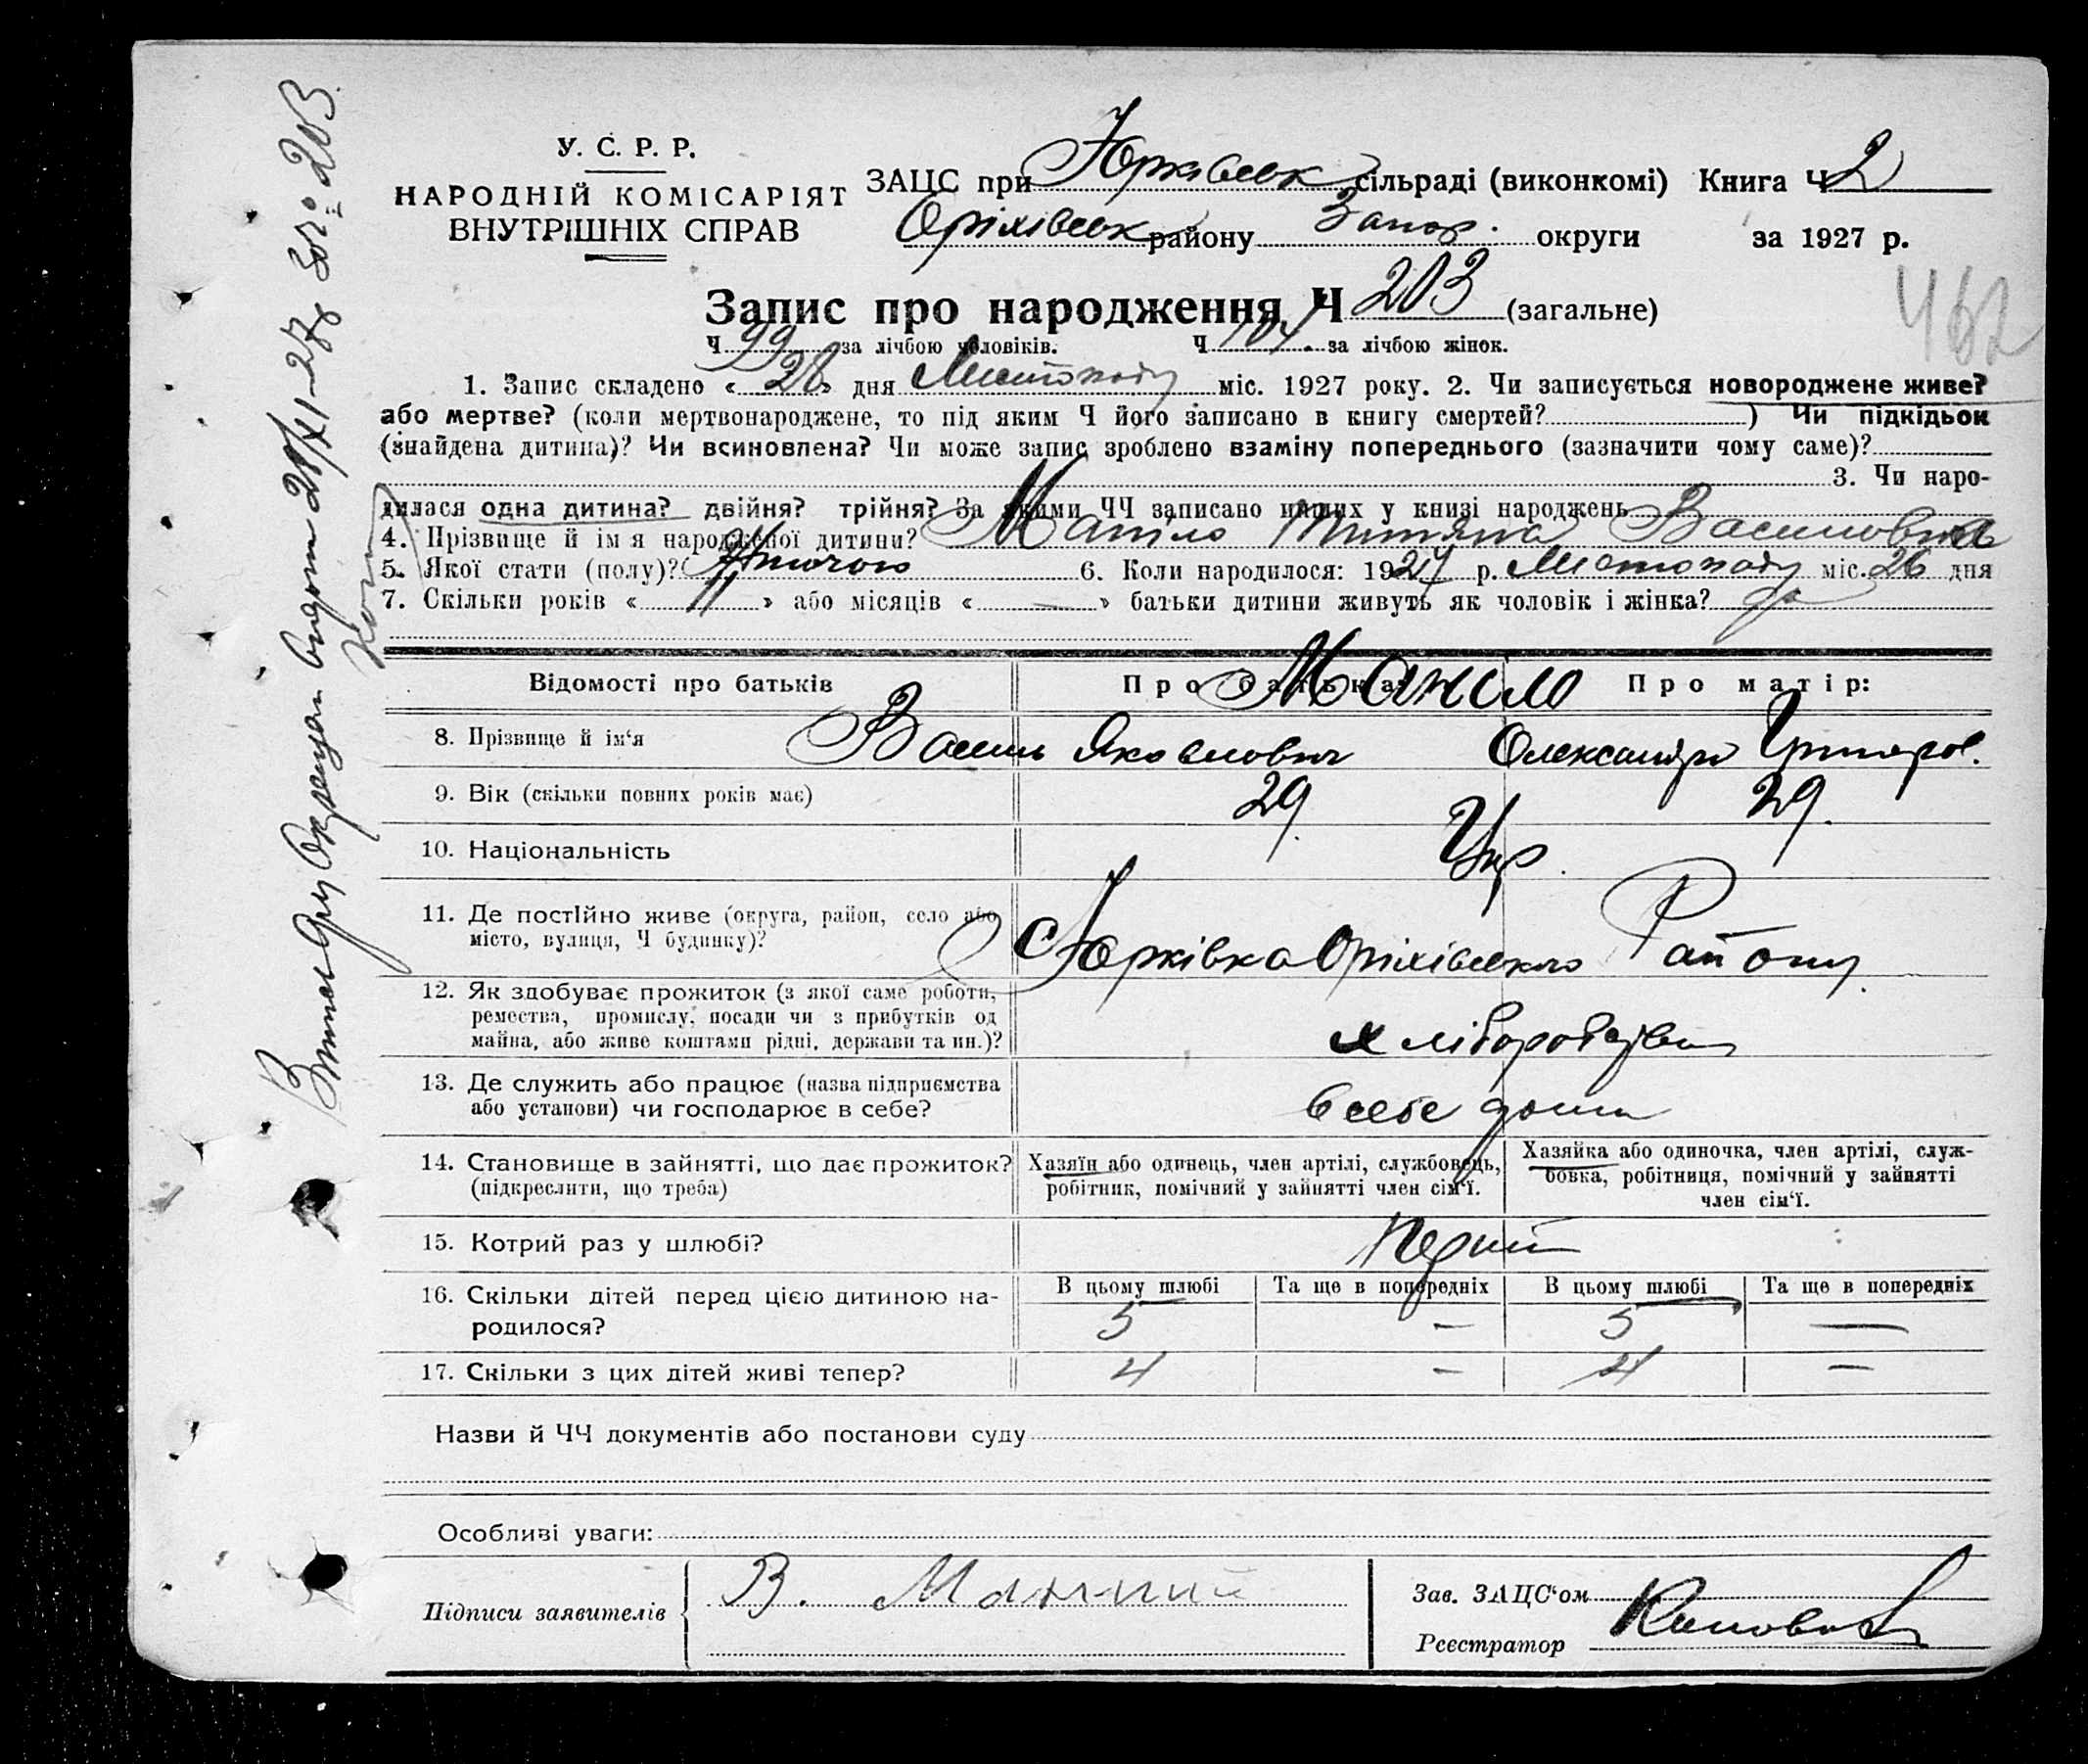 У. С. Р. Р.
НАРОДНІЙ КОМІСАРІЯТ
ВНУТРІШНІХ СПРАВ
ЗАЦС при Юрківськ сільраді (виконкомі) Книга Ч 2
Оріхівськ району Запор. округи за 1927 р.
462
Запис про народження Ч 203 (загальне)
Ч 99 за лічбою чоловіків. Ч 104. за лічбою жінок.
1. Запис складено « 28 » дня Листопаду міс. 1927 року. 2. Чи записується новороджене живе?
або мертве? (коли мертвонароджене, то під яким Ч його записано в книгу смертей? ) Чи підкідьок
(знайдена дитина)? Чи всиновлена? Чи може запис зроблено взаміну попереднього (зазначити чому саме)?
3. Чи наро-
дилася одна дитина? двійня? трійня? За якими ЧЧ записано инших у книзі народжень
4. Прізвище й імя народженої дитини? Василовна
5. Якої стати (полу)? Жіночою 6. Коли народилося: 1927 р. Листопаду міс. 26 дня
7. Скільки років « 11 » або місяців « — » батьки дитини живуть як чоловік і жінка? да
Відомості про батьків Про батька: Про матір:
8. Прізвище й ім‘я Василь Яковлович Олександра
9. Вік (скільки повних років має) 29. 29.
10. Національність Укр.
11. Де постійно живе (округа, район, село або
місто, вулиця, Ч будинку)? С Юрківка Оріхівського Району.
12. Як здобуває прожиток (з якої саме роботи,
ремества, промислу, посади чи з прибутків од
майна, або живе коштами рідні, держави та ин.)?
13. Де служить або працює (назва підприємства
або установи) чи господарює в себе? в себе дома
14. Становище в зайнятті, що дає прожиток?
(підкреслити, що треба)
Хазяїн або одинець, член артілі, службовець,
робітник, помічний у зайнятті член сім‘ї.
Хазяйка або одиночка, член артілі, служ-
бовка, робітниця, помічний у зайнятті
член сім‘ї.
15. Котрий раз у шлюбі? Перший
В цьому шлюбі Та ще в попередніх В цьому шлюбі Та ще в попередніх
16. Скільки дітей перед цією дитиною на-
родилося? 5 — 5 —
17. Скільки з цих дітей живі тепер? 4 — 4 —
Назви й ЧЧ документів або постанови суду
Особливі уваги:
Підписи заявителів В.
Зав. ЗАЦС‘ом
Реєстратор